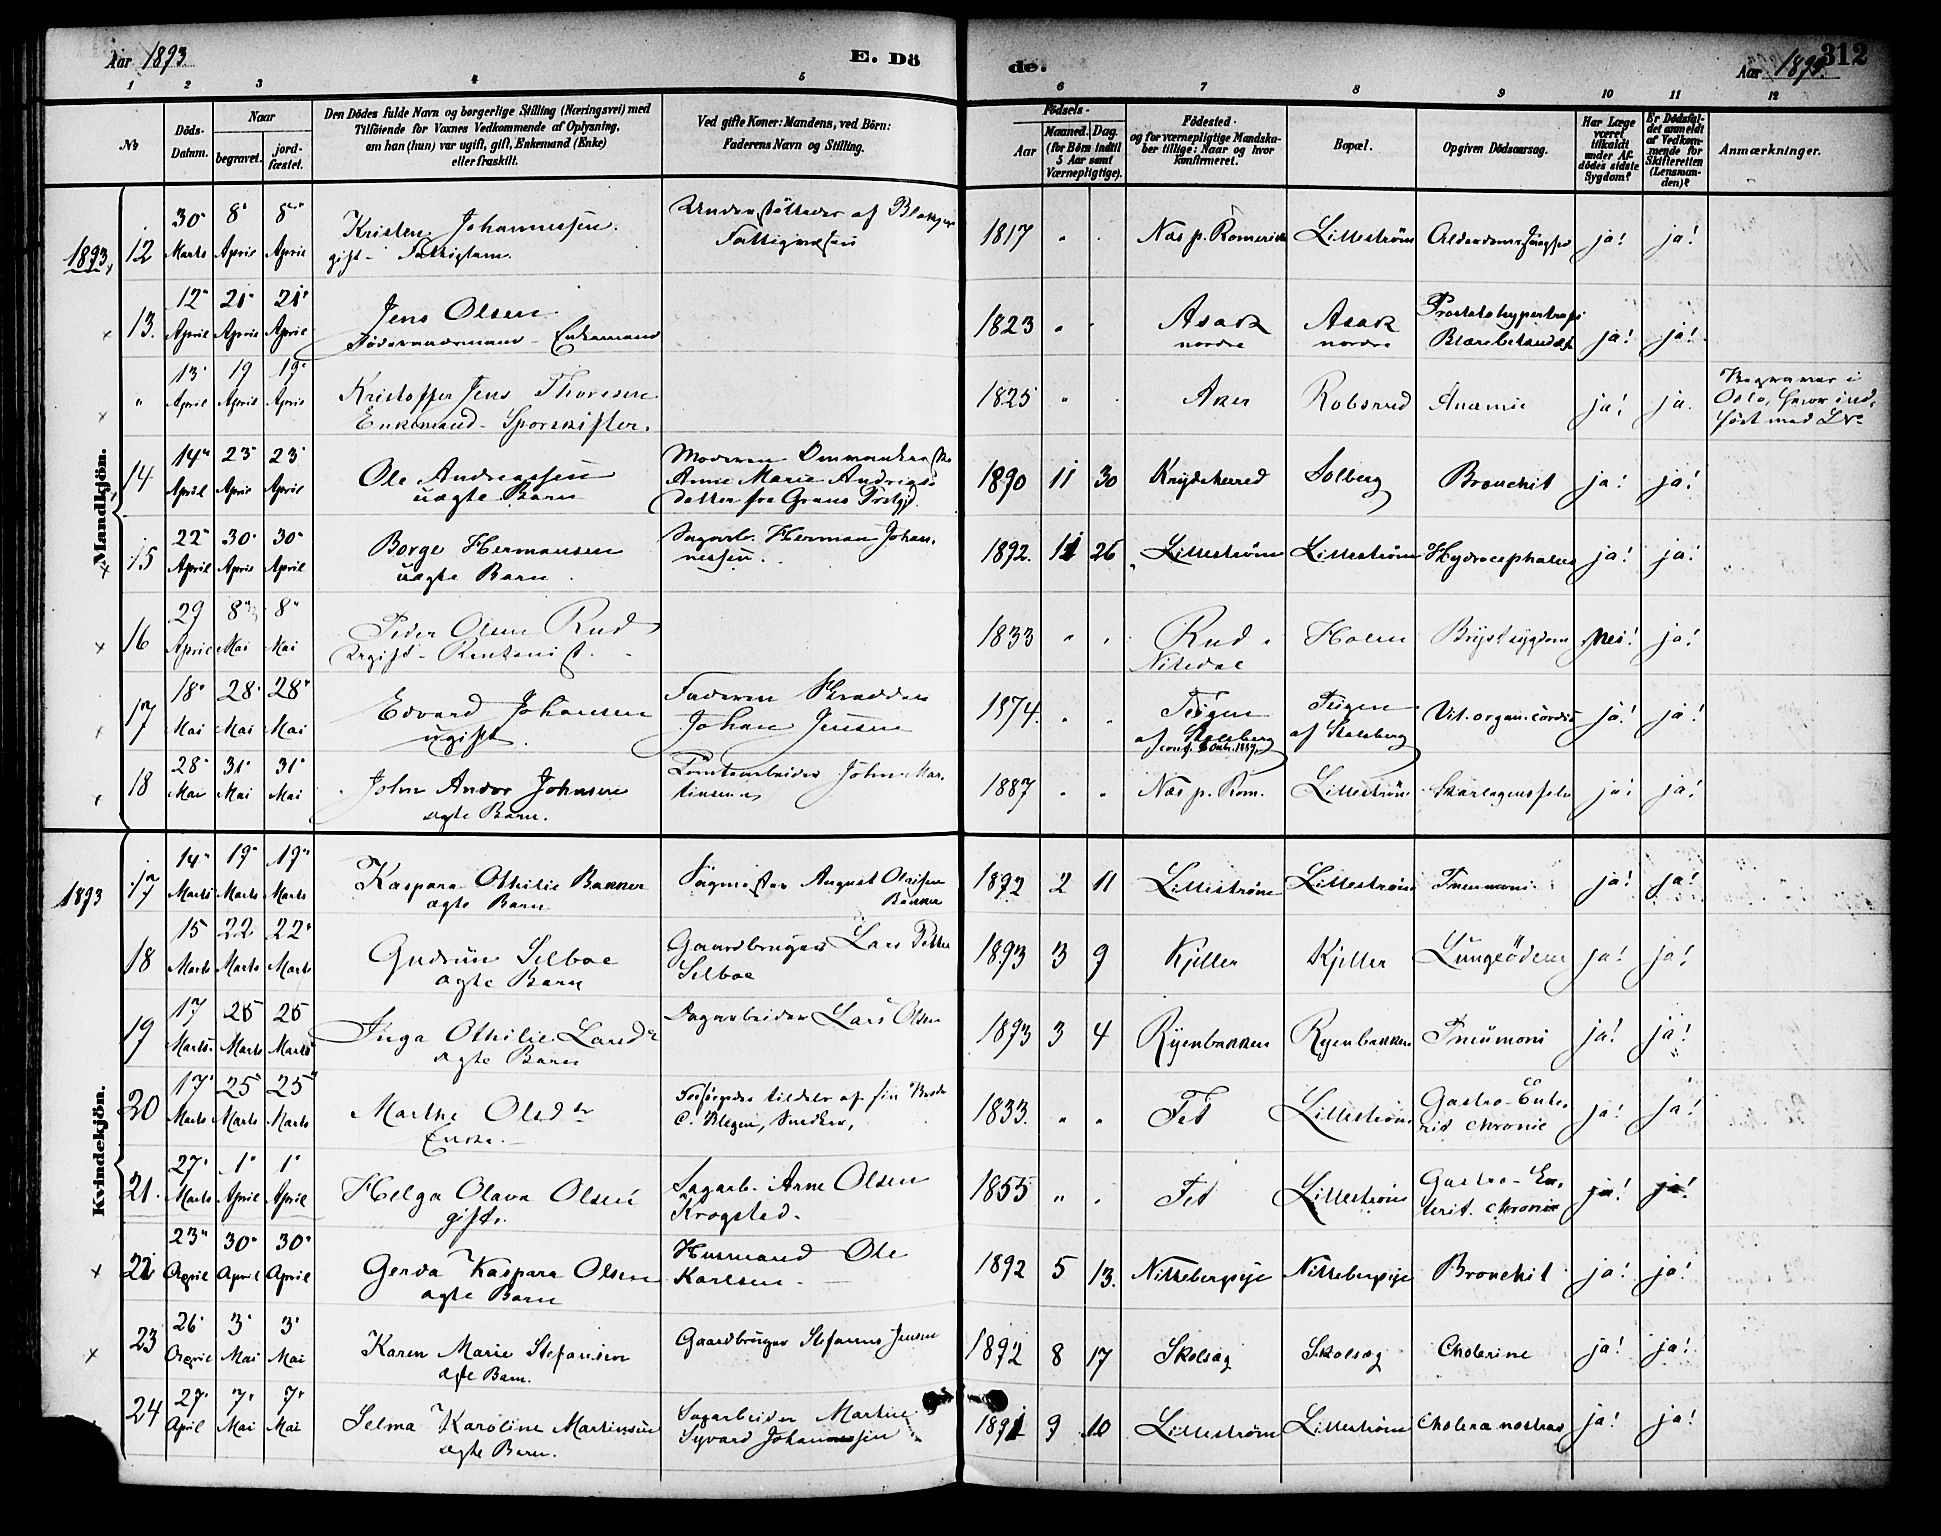 Aar 1893
E. Dö
de.
Aar 1893.
312
1 2 3 4 5 6 7 8 9 10 11 12
No
Döds-
Datum.
Naar
begravet.
jord-
fæstet.
Den Dödes fulde Navn og borgerlige Stilling (Næringsvei) med
Tilföiende for Voxnes Vedkommende af Oplysning,
om han (hun) var ugift, gift, Enkemand (Enke)
eller fraskilt.
Ved gifte Koner: Mandens, ved Börn:
Faderens Navn og Stilling.
Födsels-
Aar
Maaned.
Dag.
(for Börn indtil
5 Aar samt
Værnepligtige).
Födested
og for værnepligtige Mandska-
ber tillige: Naar og hvor
konfirmeret.
Bopæl.
Opgiven Dödsaarsag.
Har Læge
været
tilkaldt
under Af-
dödes sidste
Sygdom?
Er Dödsfal-
det anmeldt
af Vedkom-
mende for
Skifteretten
(Lensman-
den)?
Anmærkninger.
Mandkjön.
1893, 12 30 Marts 8 April 8 April Kristen Johannessen. Understöttedes af
gift - Fattiglem. 1817 " " Næs p. Romerike Lillestrøm ja! ja!
13. 12 April 21 April 21 April Jens Olsen
Föderaadsmand - Enkemand 1823 " " Asak nordre Asak nordre ja! ja!
" 13 April 19 April 19 April Kristoffer Jens Thoresen
Enkemand - Sporskifter. 1825 " " Aker Robsrud Anæmie ja! ja. Begraves i
Oslo, hvor ind-
fört med No
14 14 April 23 April 23 April Ole Andreassen
uægte Barn Moderen
Anne Marie Andreas-
datter fra Grans Prstgjd. 1890 11 30 Krydsherred Solberg Bronchit ja! ja!
15 22 April 30 April 30 April Borge Hermansen
uægte Barn Sagarb. Herman Johan-
nessen. 1892. 11 26 Lillestrøm Lillestrøm Hydrocephalus ja! ja!
16 29 April 8 Mai 8 Mai Peder Olsen Rud
Ugift - Rentenist. 1833 " " Rud. Nitedal Holm Brystsygdom Nei! ja!
17 18 Mai 28 Mai 28 Mai Edvard Johansen
ugift. Faderen Skrædder
Johan Jensen 1874. " " Teigen
af Skedsberg Teigen
af Skedsberg Vit. organ. cordis ja! ja!
18 28 Mai 31 Mai 31 Mai John Andor Johnsen
ægte Barn. Tomtearbeider John Mar-
tinsen 1887 " " Næs p. Rom. Lillestrøm Skarlagensfeber ja! ja!
Kvindekjön.
1893 17 14 Marts 19 Marts 19 Marts Kaspara Othilie Bakker
ægte Barn Sagmester August Olaisen
Bakker 1892 2 11 Lillestrøm Lillestrøm Pneumoni ja! ja!
18 15 Marts 22 Marts 22 Marts Gudrun Selboe
ægte Barn Gaardbruger Lars Petter
Selboe 1893 3 9 Kjeller Kjeller Lungeödem ja! ja!
19 17 Marts 25 Marts 25 Marts Inga Othilie Larsdr
ægte Barn Sagarbeider Lars Olsen 1893 3 4 Ryenbakken Ryenbakken Pneumoni ja! ja!
20 17 Marts 25 Marts 25 Marts Marthe Olsdtr
Enke. - Forsörgedes tildels af sin
Snedker, 1833. " " Fet Lillestrøm Gastro-Ente-
rit chronic ja! ja!
21. 27 Marts 1 April 1 April Helga Olava Olsen
gift. Sagarb. Arne Olsen
Krogsted. 1855 " " Fet Lillestrøm Gastro-En-
terit. chronic ja! ja!
22 23 April 30 April 30 April Gerda Kaspara Olsen
ægte Barn Husmand Ole
Karlsen - 1892 5 13. Nittebergeje Nittebergeje Bronchit ja! ja!
23 26 April 3 Mai 3 Mai Karen Marie Stefansen
ægte Barn. Gaardbruger Stefanus Jensen 1892 8 17 Skolsæg Skolsæg Cholerine ja! ja!
24 27 April 7 Mai 7 Mai Selma Karoline Martinsen
ægte Barn. Sagarbeider Martin
Syvard Johannessen 1891 9 10 Lillestrøm Lillestrøm Cholera nostras ja! ja!